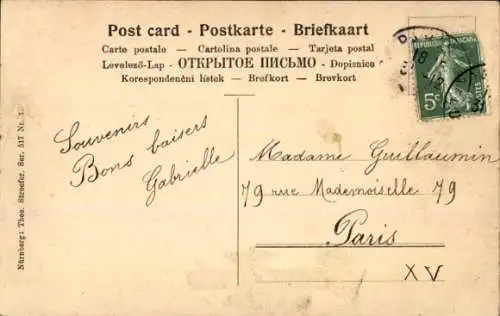 Post card - Postkarte - Briefkaart
Carte postale — Cartolina postale — Tarjeta postal
Levelező-Lap — ОТКРЫТОЕ ПИСЬМО — Dopisnice
Korespondenční lístek — Brefkort — Brevkort
5c
Souvenirs
Bons baisers
Gabrielle
Madame Guillaumin
79 rue Mademoiselle 79
Paris
XV
Nürnberg: Theo. Stroefer. Ser. 517 Nr.